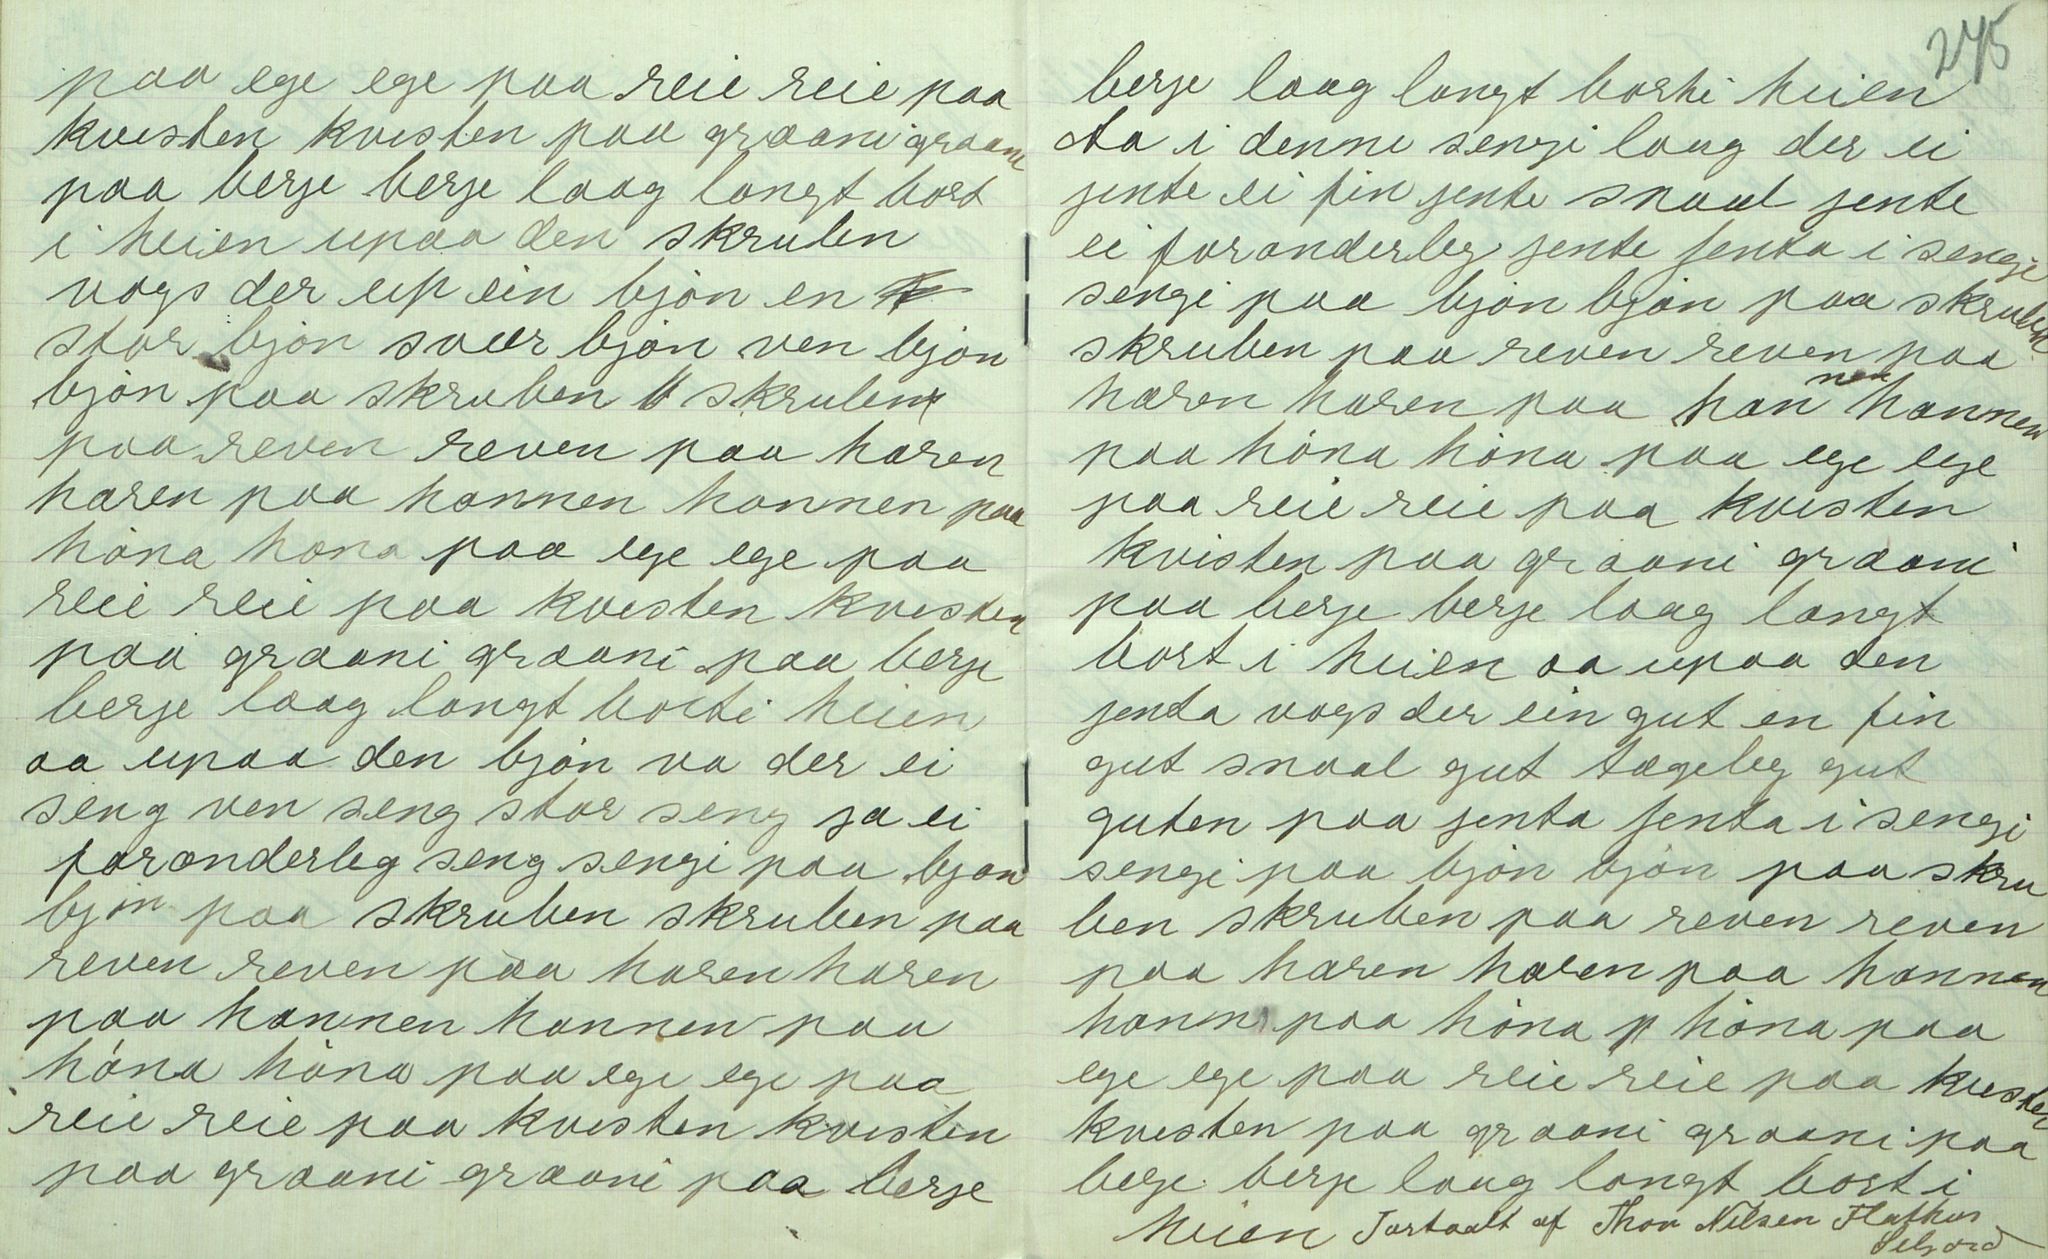 paa ege ege paa reie reie paa
kvisten kvisten paa graani graani
paa berje berje laag langt bort
i heien upaa den skruben
vogs der up ein bjón en
stor bjón svær bjón ven bjón
bjón paa skruben skruben
paa reven reven paa haren
haren paa hannen hannen paa
hóna hona paa ege ege paa
reie reie paa kvisten kvisten
paa graani graani paa berje
berje laag langt borti heien
aa upaa den bjón va der ei
seng ven seng stor seng ja ei
foranderleg seng sengi paa bjón
bjón paa skruben skruben paa
reven reven paa haren haren
paa hannen hannen paa
hóna hóna paa ege ege paa
reie reie paa kvisten kvisten
paa graani graani paa berje
245
berje laag langt borti heien
Aa i denne sengi laag der ei
jente ei fin jente snaal jente
ei foranderleg jente jenta i sengi
sengi paa bjón bjón paa skruben
skruben paa reven reven paa
haren haren paa hannen hannen
paa hóna hóna paa ege ege
paa reie reie paa kvisten
kvisten paa graani graani
paa berje berje laag langt
bort i heien aa upaa den
jenta vogs der ein gut en fin
gut snaal gut tægeleg gut
guten paa jenta jenta i sengi
sengi paa bjón bjón paa skru
ben skruben paa reven reven
paa haren haren paa hannen
hannn paa hóna hóna paa
ege ege paa reie reie paa kvisten
kvisten paa graani graani paa
berje berje laag langt bort i
heien Fortaalt af Thor Nilsen Flathus
Seljord